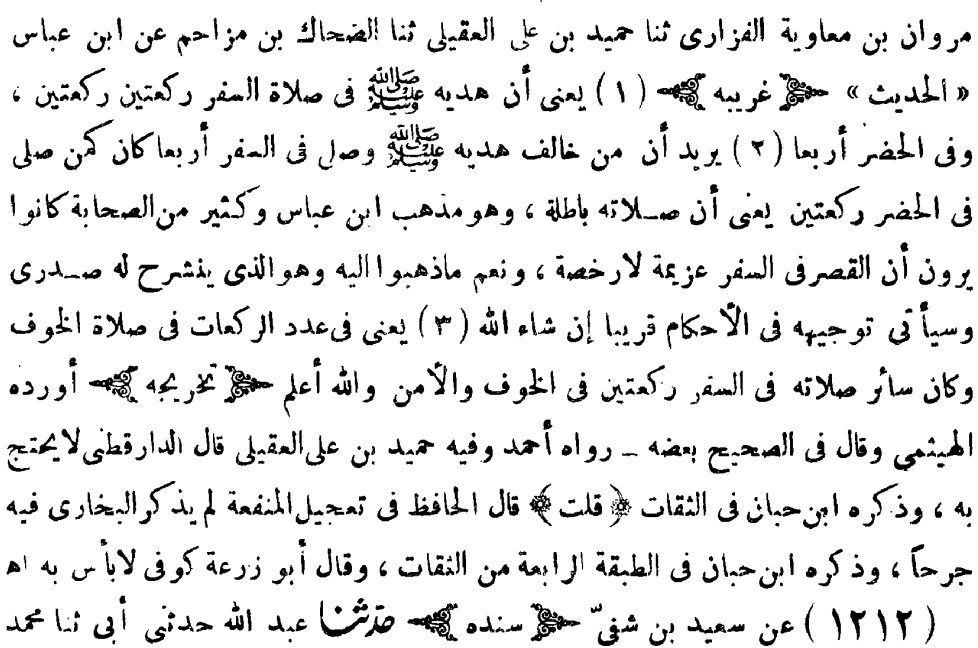 مروان بن معاوية الفزارى ثنا حميد بن على العقيلى ثنا الضحاك بن مزاحم عن ابن عباس
« الحديث » غريبه (١) يعنى أن هديه ﷺ فى صلاة السفر ركعتين ركعتين ،
وفى الحضر أربعا (٢) يريد أن من خالف هديه ﷺ وصلى فى السفر أربعا كان كمن صلى
فى الحضر ركعتين يعنى أن صلاته باطلة ، وهو مذهب ابن عباس وكثير من الصحابة كانوا
يرون أن القصر فى السفر عزيمة لارخصة ، ونعم ماذهبوا اليه وهو الذى ينشرح له صدرى
وسيأتى توجيهه فى الأحكام قريبا إن شاء الله (٣) يعنى فى عدد الركعات فى صلاة الخوف
وكان سائر صلاته فى السفر ركعتين فى الخوف والأمن والله أعلم تخريجه أورده
الهيثمي وقال فى الصحيح بعضه ـ رواه أحمد وفيه حميد بن على العقيلى قال الدارقطنى لايحتج
به ، وذكره ابن حبان فى الثقات ﴿ قلت ﴾ قال الحافظ فى تعجيل المنفعة لم يذكر البخارى فيه
جرحاً ، وذكره ابن حبان فى الطبقة الرابعة من الثقات ، وقال أبو زرعة كوفى لابأس به اهـ
( ١٢١٢ ) عن سعيد بن شفىّ سنده حدّثنا عبد الله حدثنى أبى ثنا محمد